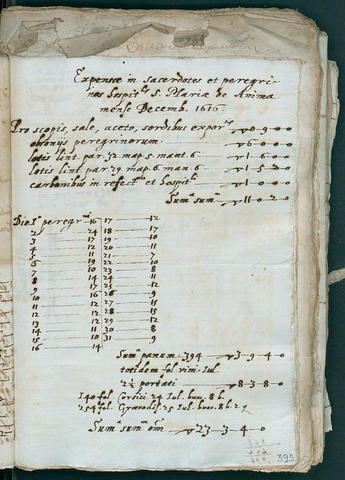 Expensæ in sacerdotes et peregri-
nos hospit^lis S. Mariæ de Anima
mense Decemb. 1616
Pro scopis, sale, aceto, sordibus export. ▽0-9-0-0
obsonys peregrinorum ▽6-0-0-0
lotis lint. par. 72. map. 5. mant. 6 ▽1-6-0-0
lotis lint. par. 29. map. 6. man. 6 ▽1-5-20
carbonibus in refect° et hospit^li ▽1-0-0-0
Sum^a sum^m ▽11-0-2-0
Die 1^a peregr^ni 16 17 — 12
2 — 24 18 — 17
3 — 17 19 — 10
4 — 12 20 — 11
5 — 11 21 — 7
6 — 19 22 — 10
7 — 14 23 — 11
8 — 14 24 — 11
9 — 17 25 — 12
10 — 16 26 — 9
11 — 12 27 — 15
12 — 11 28 — 15
13 — 11 29
14 — 11 30 — 8
15 — 10 31 — 9
16 — 14
Sum^a panum 394 ▽3-9-4-0
totidem fol. vini Iul.
2½ portati ▽8-3-8-0
140 fol. Corsici 24 Iul. buc. 8 b.
254 fol. 25 Iul. buc. 8 b.
Sum^a sum^m om^m ▽23-3-4-0
395